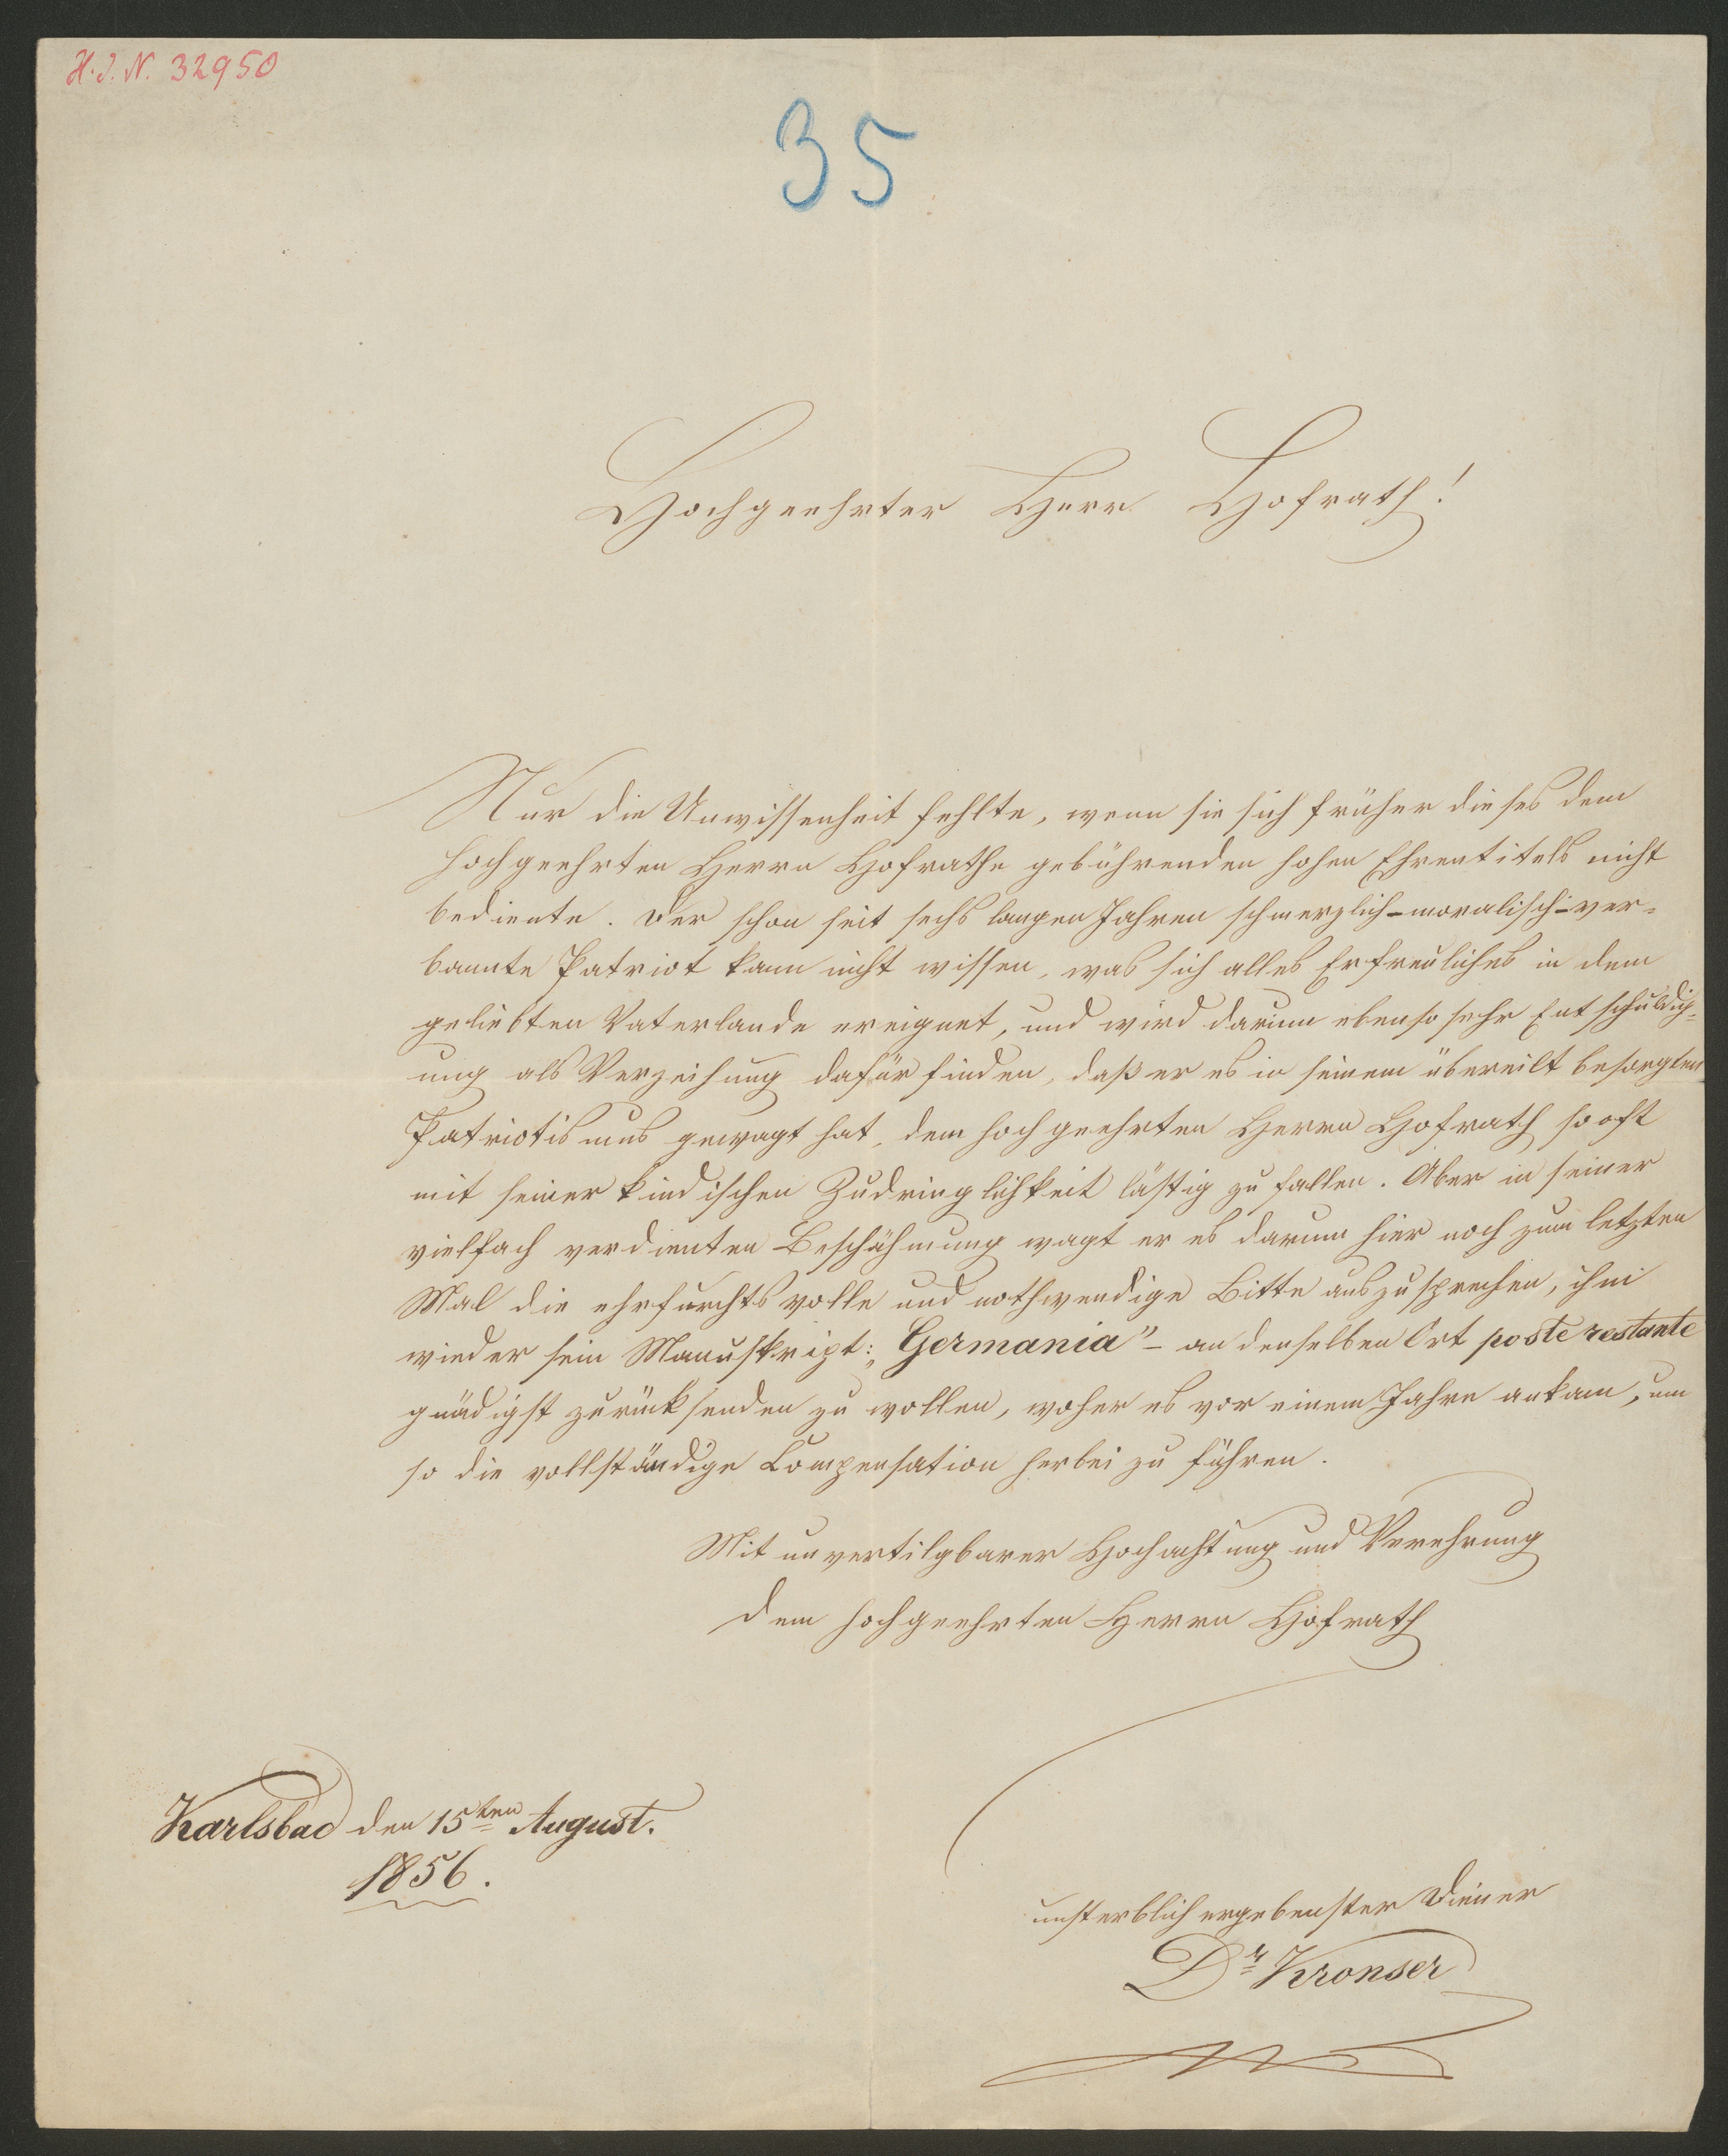 H.I.N. 32950
35
Hochgeehrter Herr Hofrath!
Nur die Unwissenheit fehlte, wenn sie sich früher dieses dem
hochgeehrten Herrn Hofrathe gebührenden hohen Ehrentitels nicht
bediente. Der schon seit sechs langen Jahren schmerzlich-moralisch-ver-
bannte Patriot kann nicht wissen, was sich alles Erfreuliches in dem
geliebten Vaterlande ereignet, und wird darum ebenso sehr Entschuldig-
ung als Verzeihung dafür finden, daß er es in seinem übereilt besorgten
Patriotismus gewagt hat, dem hochgeehrten Herrn Hofrath so oft
mit seiner kindischen Zudringlichkeit lästig zu fallen. Aber in seiner
vielfach verdienten Beschähmung wagt er es darum hier noch zum letzten
Mal die ehrfurchtsvolle und nothwendige Bitte auszusprechen, ihm
wieder sein Manuskript: „Germania" - an denselben Ort poste restante
gnädigst zurücksenden zu wollen, woher es vor einem Jahre ankam, um
so die vollständige Compensation herbei zu führen.
Mit unvertilgbarer Hochachtung und Verehrung
dem hochgeehrten Herrn Hofrath
Karlsbad den 15ten August.
1856.
unsterblich ergebenster Diener
Dr Kronser